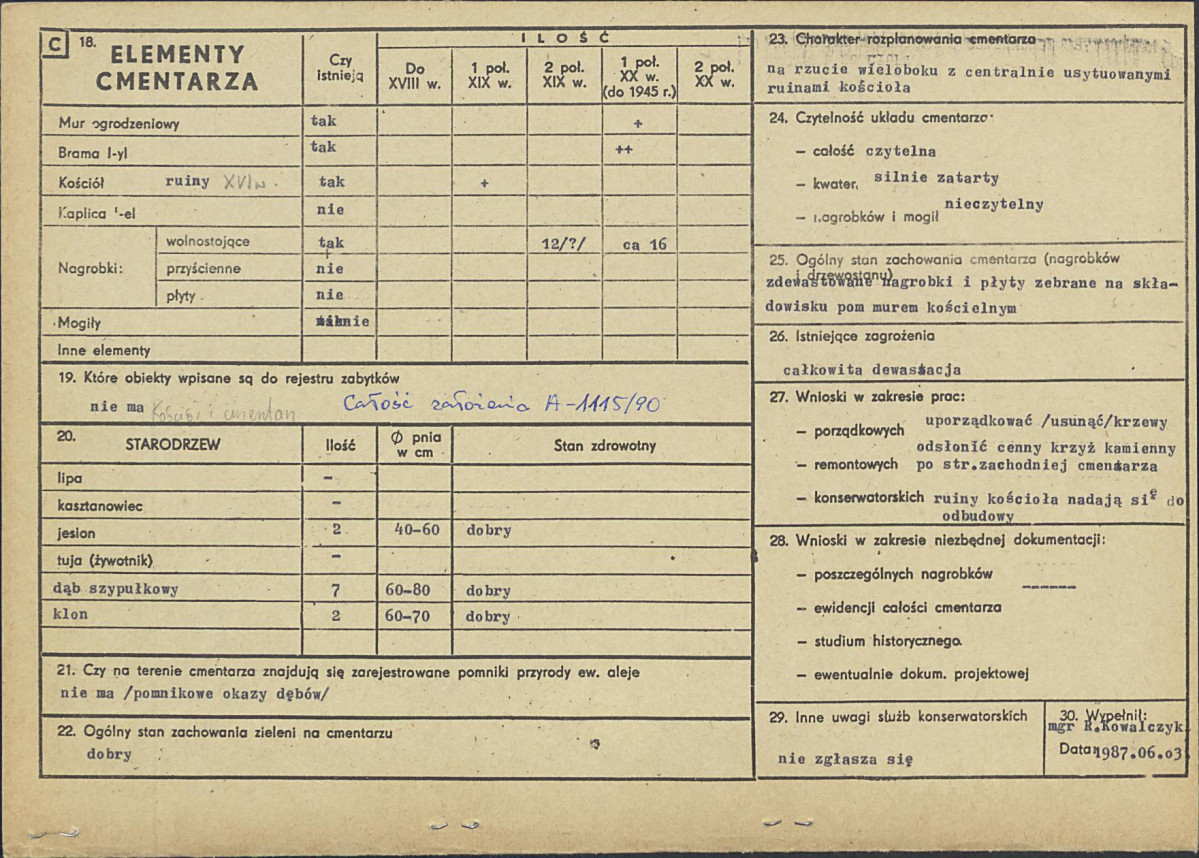 C 18. ELEMENTY CMENTARZA
Czy istnieją
ILOŚĆ
Do XVIII w.
1 poł. XIX w.
2 poł. XIX w.
1 poł. XX w. (do 1945 r.)
2 poł. XX w.
Mur ogrodzeniowy tak +
Brama I-yl tak ++
Kościół ruiny XVI w. tak +
Kaplica -el nie
Nagrobki:
wolnostojące tak 12/?/ ca 16
przyścienne nie
płyty nie
Mogiły nie
Inne elementy
19. Które obiekty wpisane są do rejestru zabytków
nie ma Kościół i cmentarz Całość założenia A-1115/90
20. STARODRZEW Ilość Ø pnia w cm Stan zdrowotny
lipa –
kasztanowiec –
jesion 2 40-60 dobry
tuja (żywotnik) –
dąb szypułkowy 7 60-80 dobry
klon 2 60-70 dobry
21. Czy na terenie cmentarza znajdują się zarejestrowane pomniki przyrody ew. aleje
nie ma /pomnikowe okazy dębów/
22. Ogólny stan zachowania zieleni na cmentarzu
dobry
23. Charakter rozplanowania cmentarza
na rzucie wieloboku z centralnie usytuowanymi
ruinami kościoła
24. Czytelność układu cmentarza:
– całość czytelna
– kwater, silnie zatarty
nieczytelny
– nagrobków i mogił
25. Ogólny stan zachowania cmentarza (nagrobków
i drzewostanu)
zdewastowane nagrobki i płyty zebrane na skła-
dowisku pom murem kościelnym
26. Istniejące zagrożenia
całkowita dewastacja
27. Wnioski w zakresie prac:
– porządkowych uporządkować /usunąć/krzewy
odsłonić cenny krzyż kamienny
– remontowych po str.zachodniej cmentarza
– konserwatorskich ruiny kościoła nadają się do
odbudowy
28. Wnioski w zakresie niezbędnej dokumentacji:
– poszczególnych nagrobków ------
– ewidencji całości cmentarza
– studium historycznego
– ewentualnie dokum. projektowej
29. Inne uwagi służb konserwatorskich
nie zgłasza się
30. Wypełnił:
mgr R.Kowalczyk
Data 1987.06.03